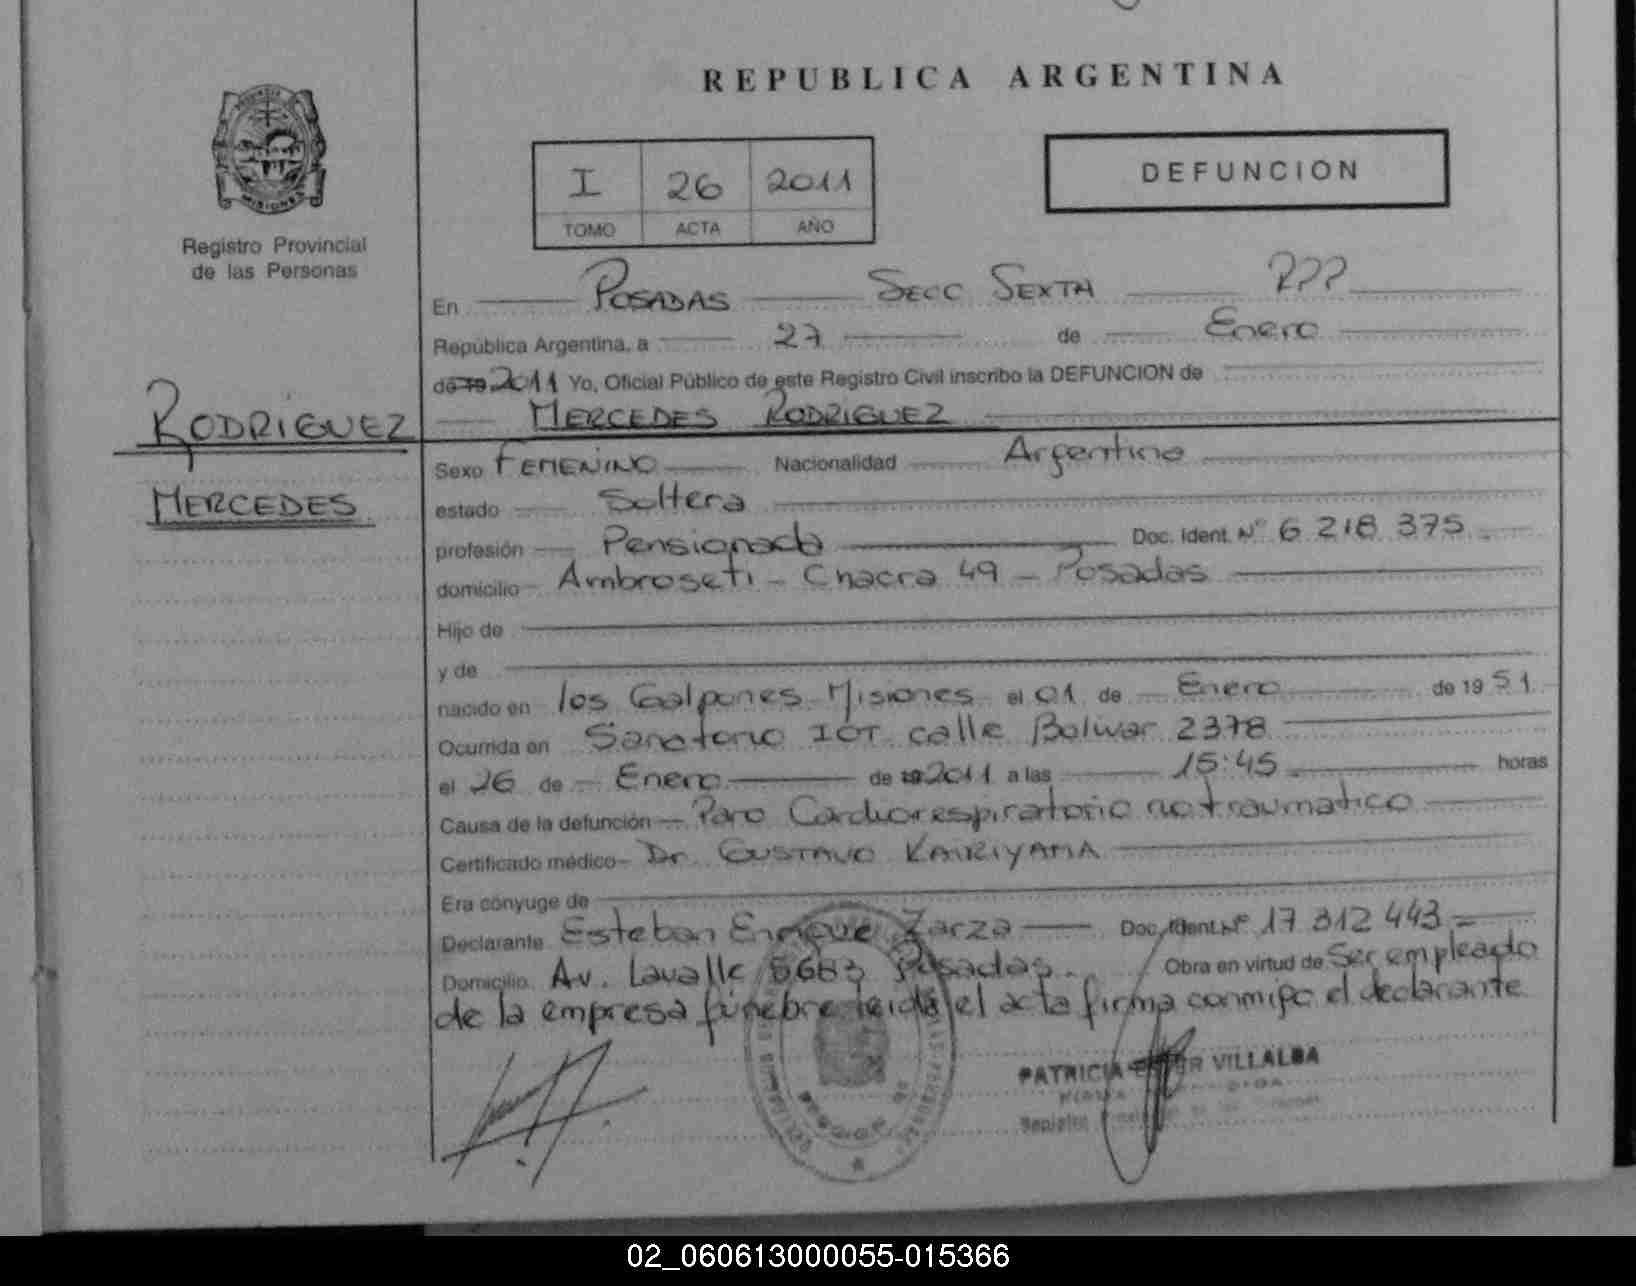 REPUBLICA ARGENTINA
PROVINCIA
MISIONES
Registro Provincial
de las Personas
I 26 2011
TOMO ACTA AÑO
DEFUNCION
En POSADAS SECC SEXTA
República Argentina, a 27 de Enero
de 19 2011 Yo, Oficial Público de este Registro Civil inscribo la DEFUNCION de
MERCEDES RODRIGUEZ
RODRIGUEZ
MERCEDES
Sexo FEMENINO Nacionalidad Argentina
estado Soltera
profesión Pensionada Doc. Ident. Nº 6 218 375
domicilio Ambroseti - Chacra 49 - Posadas
Hijo de
y de
nacido en los Galpones Misiones el 01 de Enero de 19 51
Ocurrida en Sanatorio IOT calle Bolivar 2378
el 26 de Enero de 19 2011 a las 15:45 horas
Causa de la defunción Paro Cardiorespiratorio no traumatico
Certificado médico Dr. GUSTAVO
Era cónyuge de
Declarante Esteban Enrique Zarza Doc. Ident. Nº 17 312 443
Domicilio Av. Lavalle 5683 Posadas. Obra en virtud de Ser empleado
de la empresa fúnebre leida el acta firma conmigo el declarante
PATRICIA VILLALBA
02_060613000055-015366